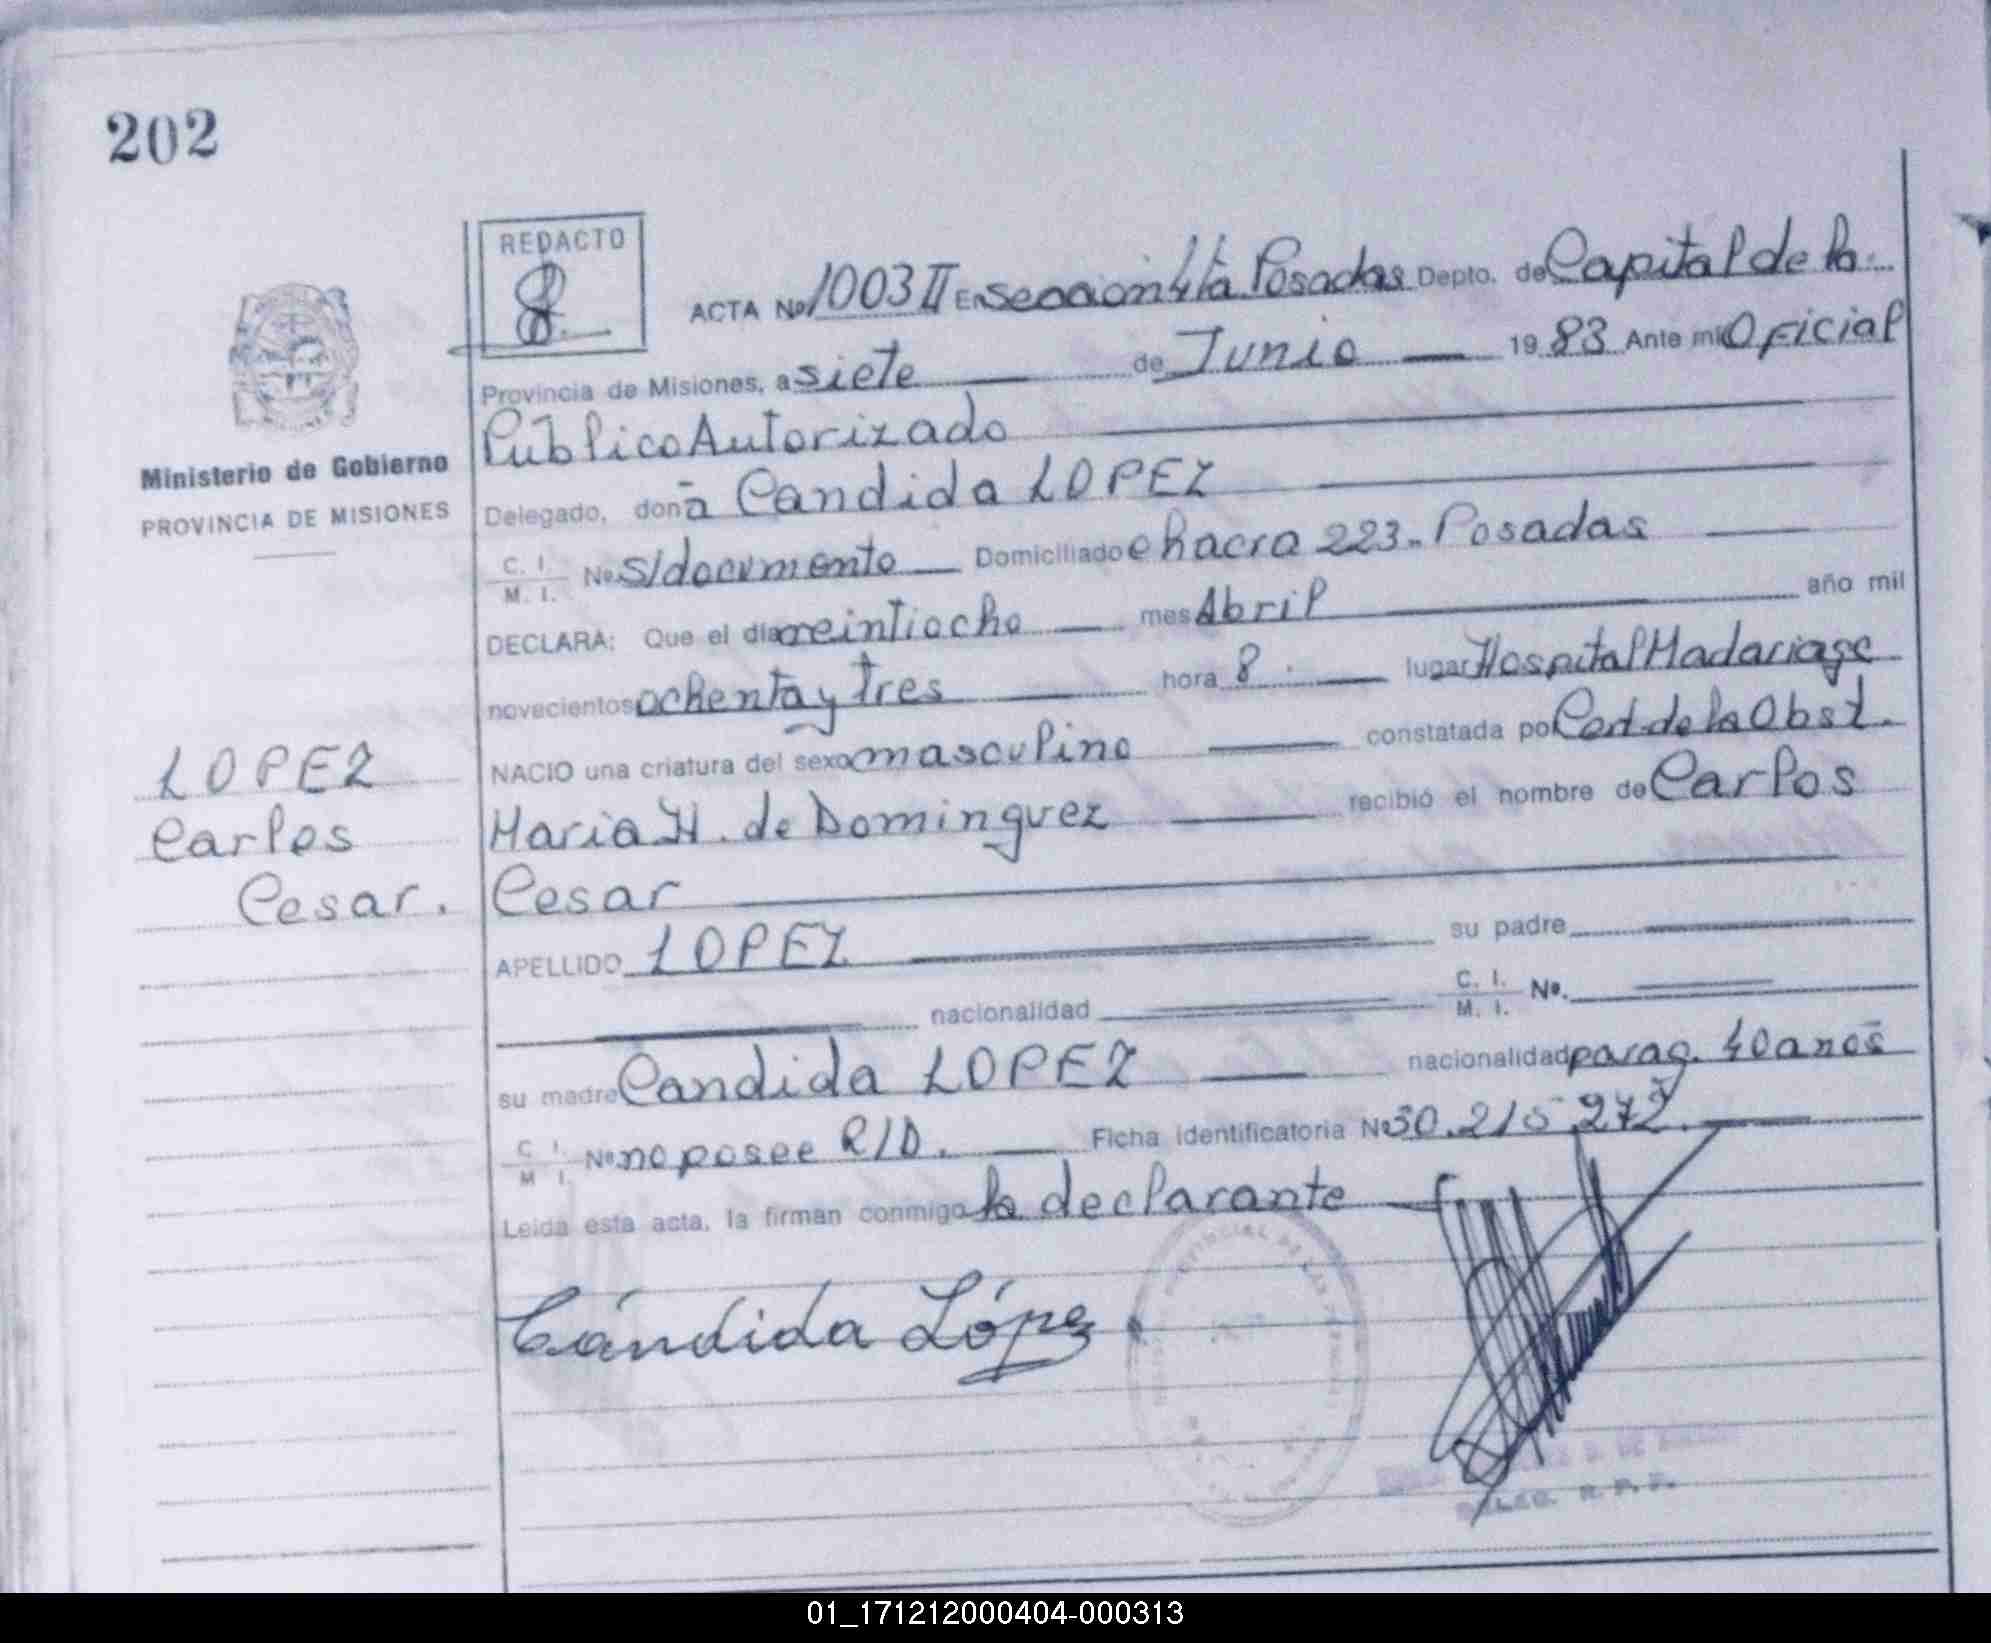 202
REDACTO
ACTA No 1003 II En seccion 4ta Posadas Depto. de Capital de la
Provincia de Misiones, a siete de Junio 1983 Ante mi Oficial
Público Autorizado
Ministerio de Gobierno
PROVINCIA DE MISIONES
Delegado, doña Candida LOPEZ
C. I. M. I. No s/documento Domiciliado chacra 223 - Posadas
DECLARA: Que el dia veintiocho mes Abril año mil
novecientos ochenta y tres hora 8. lugar Hospital Madariaga
NACIO una criatura del sexo masculino constatada por Cert. de la Obst.
Maria H. de Dominguez recibió el nombre de Carlos
Cesar
LOPEZ
Carlos
Cesar.
APELLIDO LOPEZ su padre
nacionalidad C. I. M. I. No.
su madre Candida LOPEZ nacionalidad parag. 40 años
C. I. M. I. No no posee R/D. Ficha identificatoria No 30.215.272.
Leida esta acta, la firman conmigo la declarante
Cándida López
PROVINCIAL DE LAS PERSONAS
DELEG. R. P. P.
01_171212000404-000313